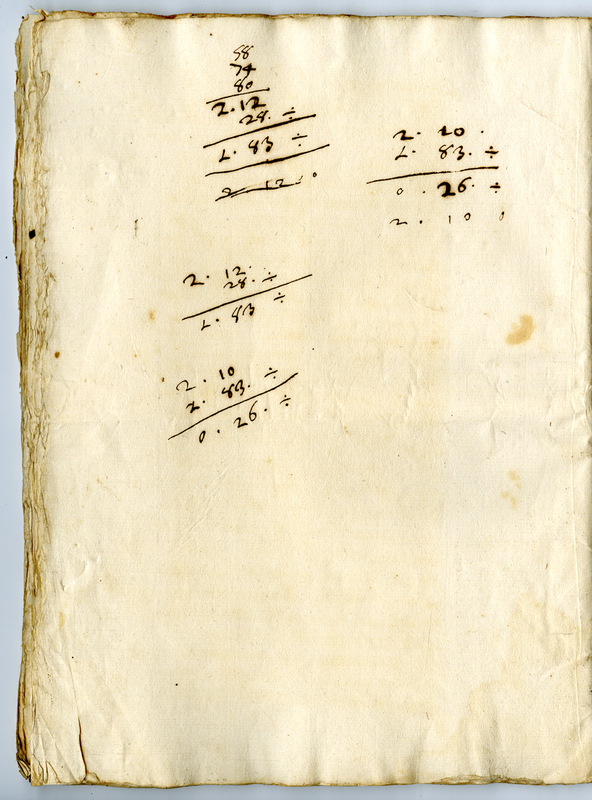 58
74
80
2.12
28. ÷
1. 83 ÷
2 12 0
2. 10 .
1. 83. ÷
0 . 26. ÷
2 . 10 0
2. 12.
28. ÷
1. 83 ÷
2 . 10 ÷
1. 83.
0 . 26. ÷